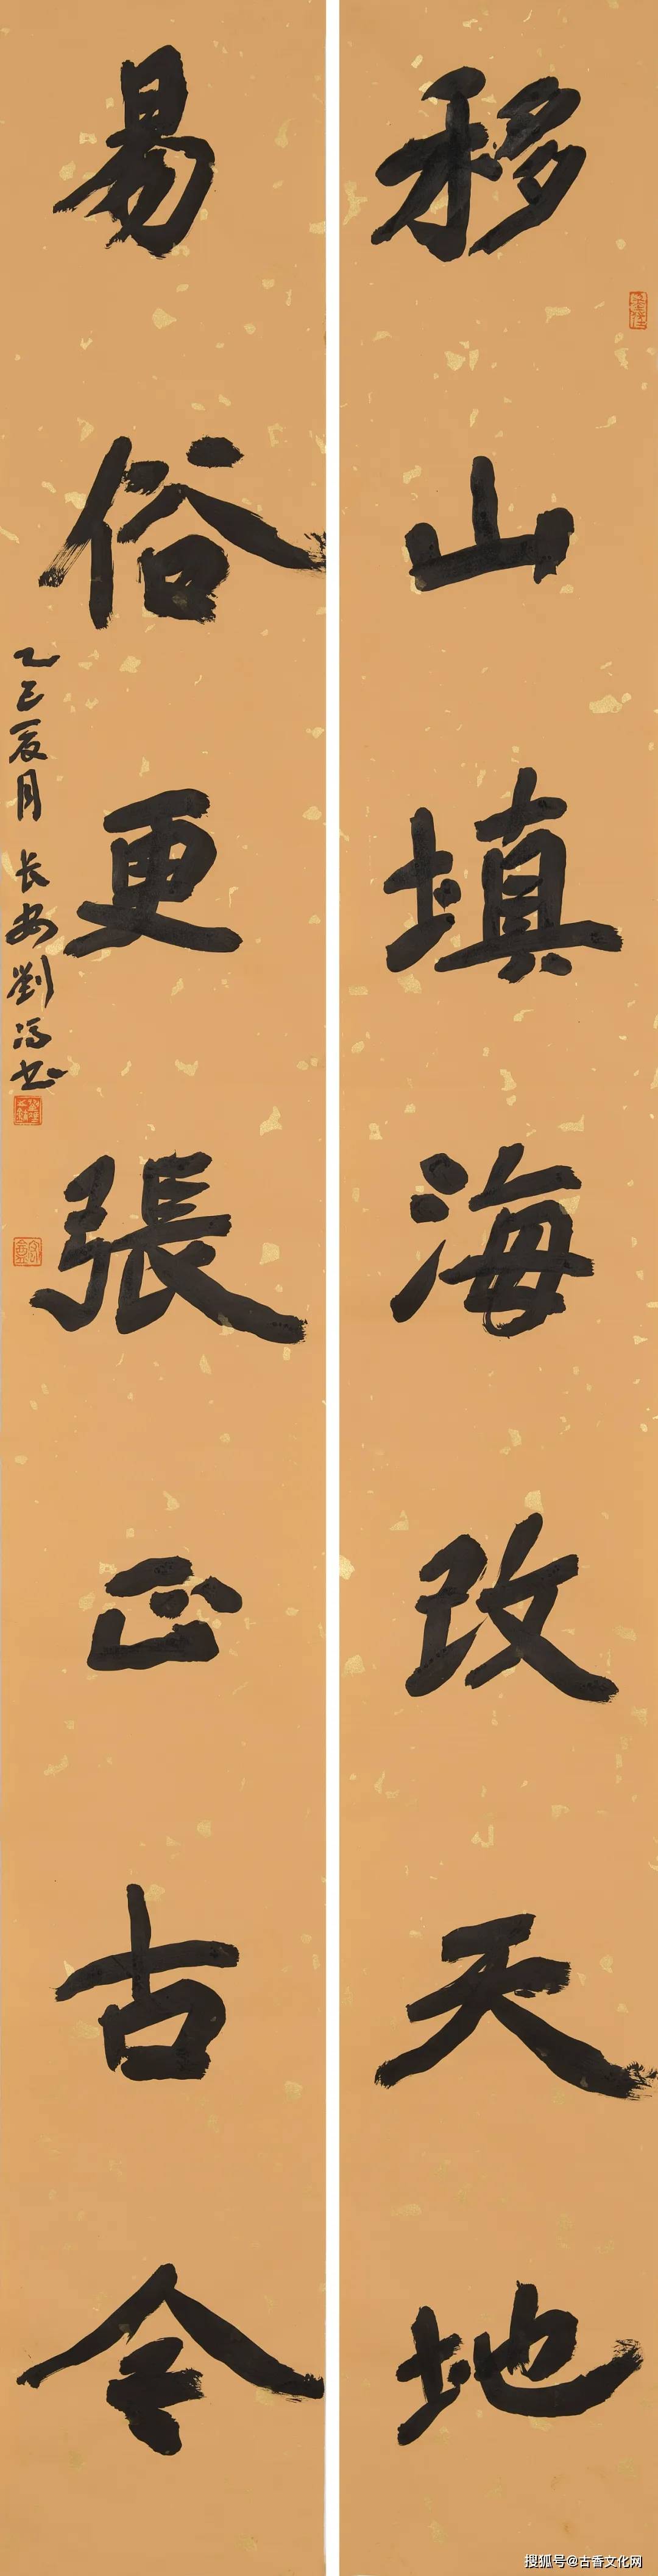 移山填海改天地
易俗更張正古今
乙巳辰月 长安劉书
搜狐号@古香文化网